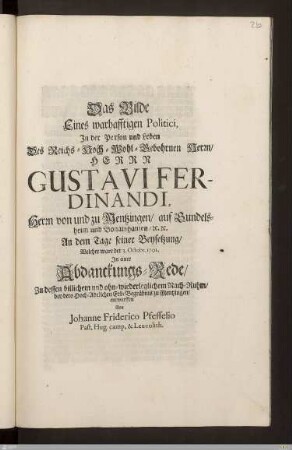 Das Bilde
Eines warhafftigen Politici,
In der Person und Leben
Des Reichs-Hoch-Wohl-Gebohrnen Herrn/
HERRN
GUSTAVI FER-
DINANDI,
Herrn von und zu Mentzingen/ auf Gundels-
heim und
An dem Tage seiner Beysetzung/
Welcher ware der 2. Octobr.
In einer
Abdanckungs-Rede/
In dessen billichem und ohn-wiederleglichem Nach-Ruhm/
bey dero Hoch-Adelichen Erb-Begräbnus zu Mentzingen/
entworffen
Von
Johanne Friderico Pfeffelio
Past. Hug. camp. &